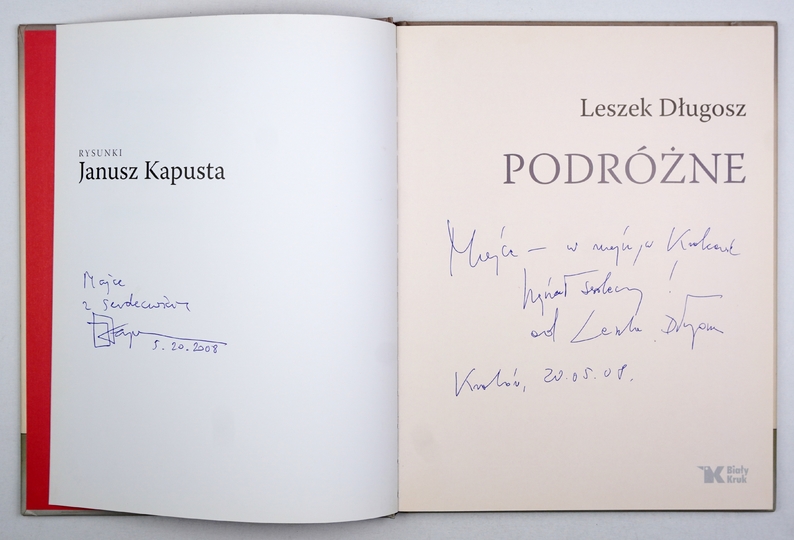 RYSUNKI
Janusz Kapusta
Majce
z serdecznością
5.20.2008
Leszek Długosz
PODRÓŻNE
Majce — w
serdeczny!
od Leszka Długosza
Kraków, 20.05.08.
Biały
Kruk